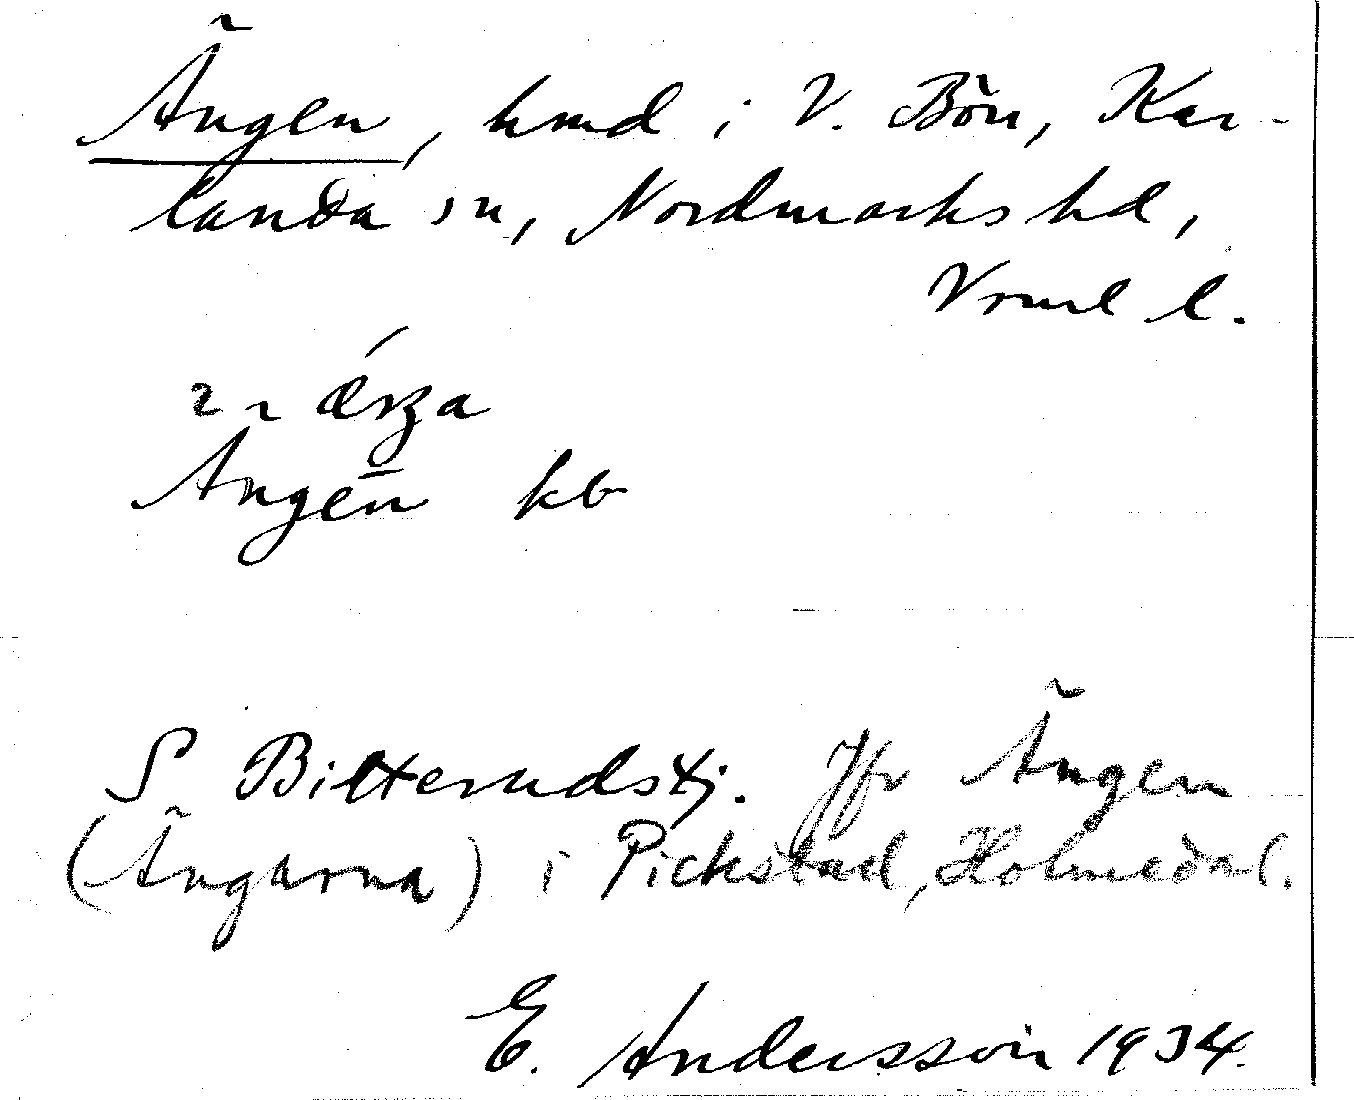 Ängen, hmd i V. Bön, Kar-
landa sn, Nordmarks hd,
Vrml l.
Ängen kb
S Bitterudstj. Jfr Ängen
(Ängarna) i Pickstad, Holmedal.
E. Andersson 1934.